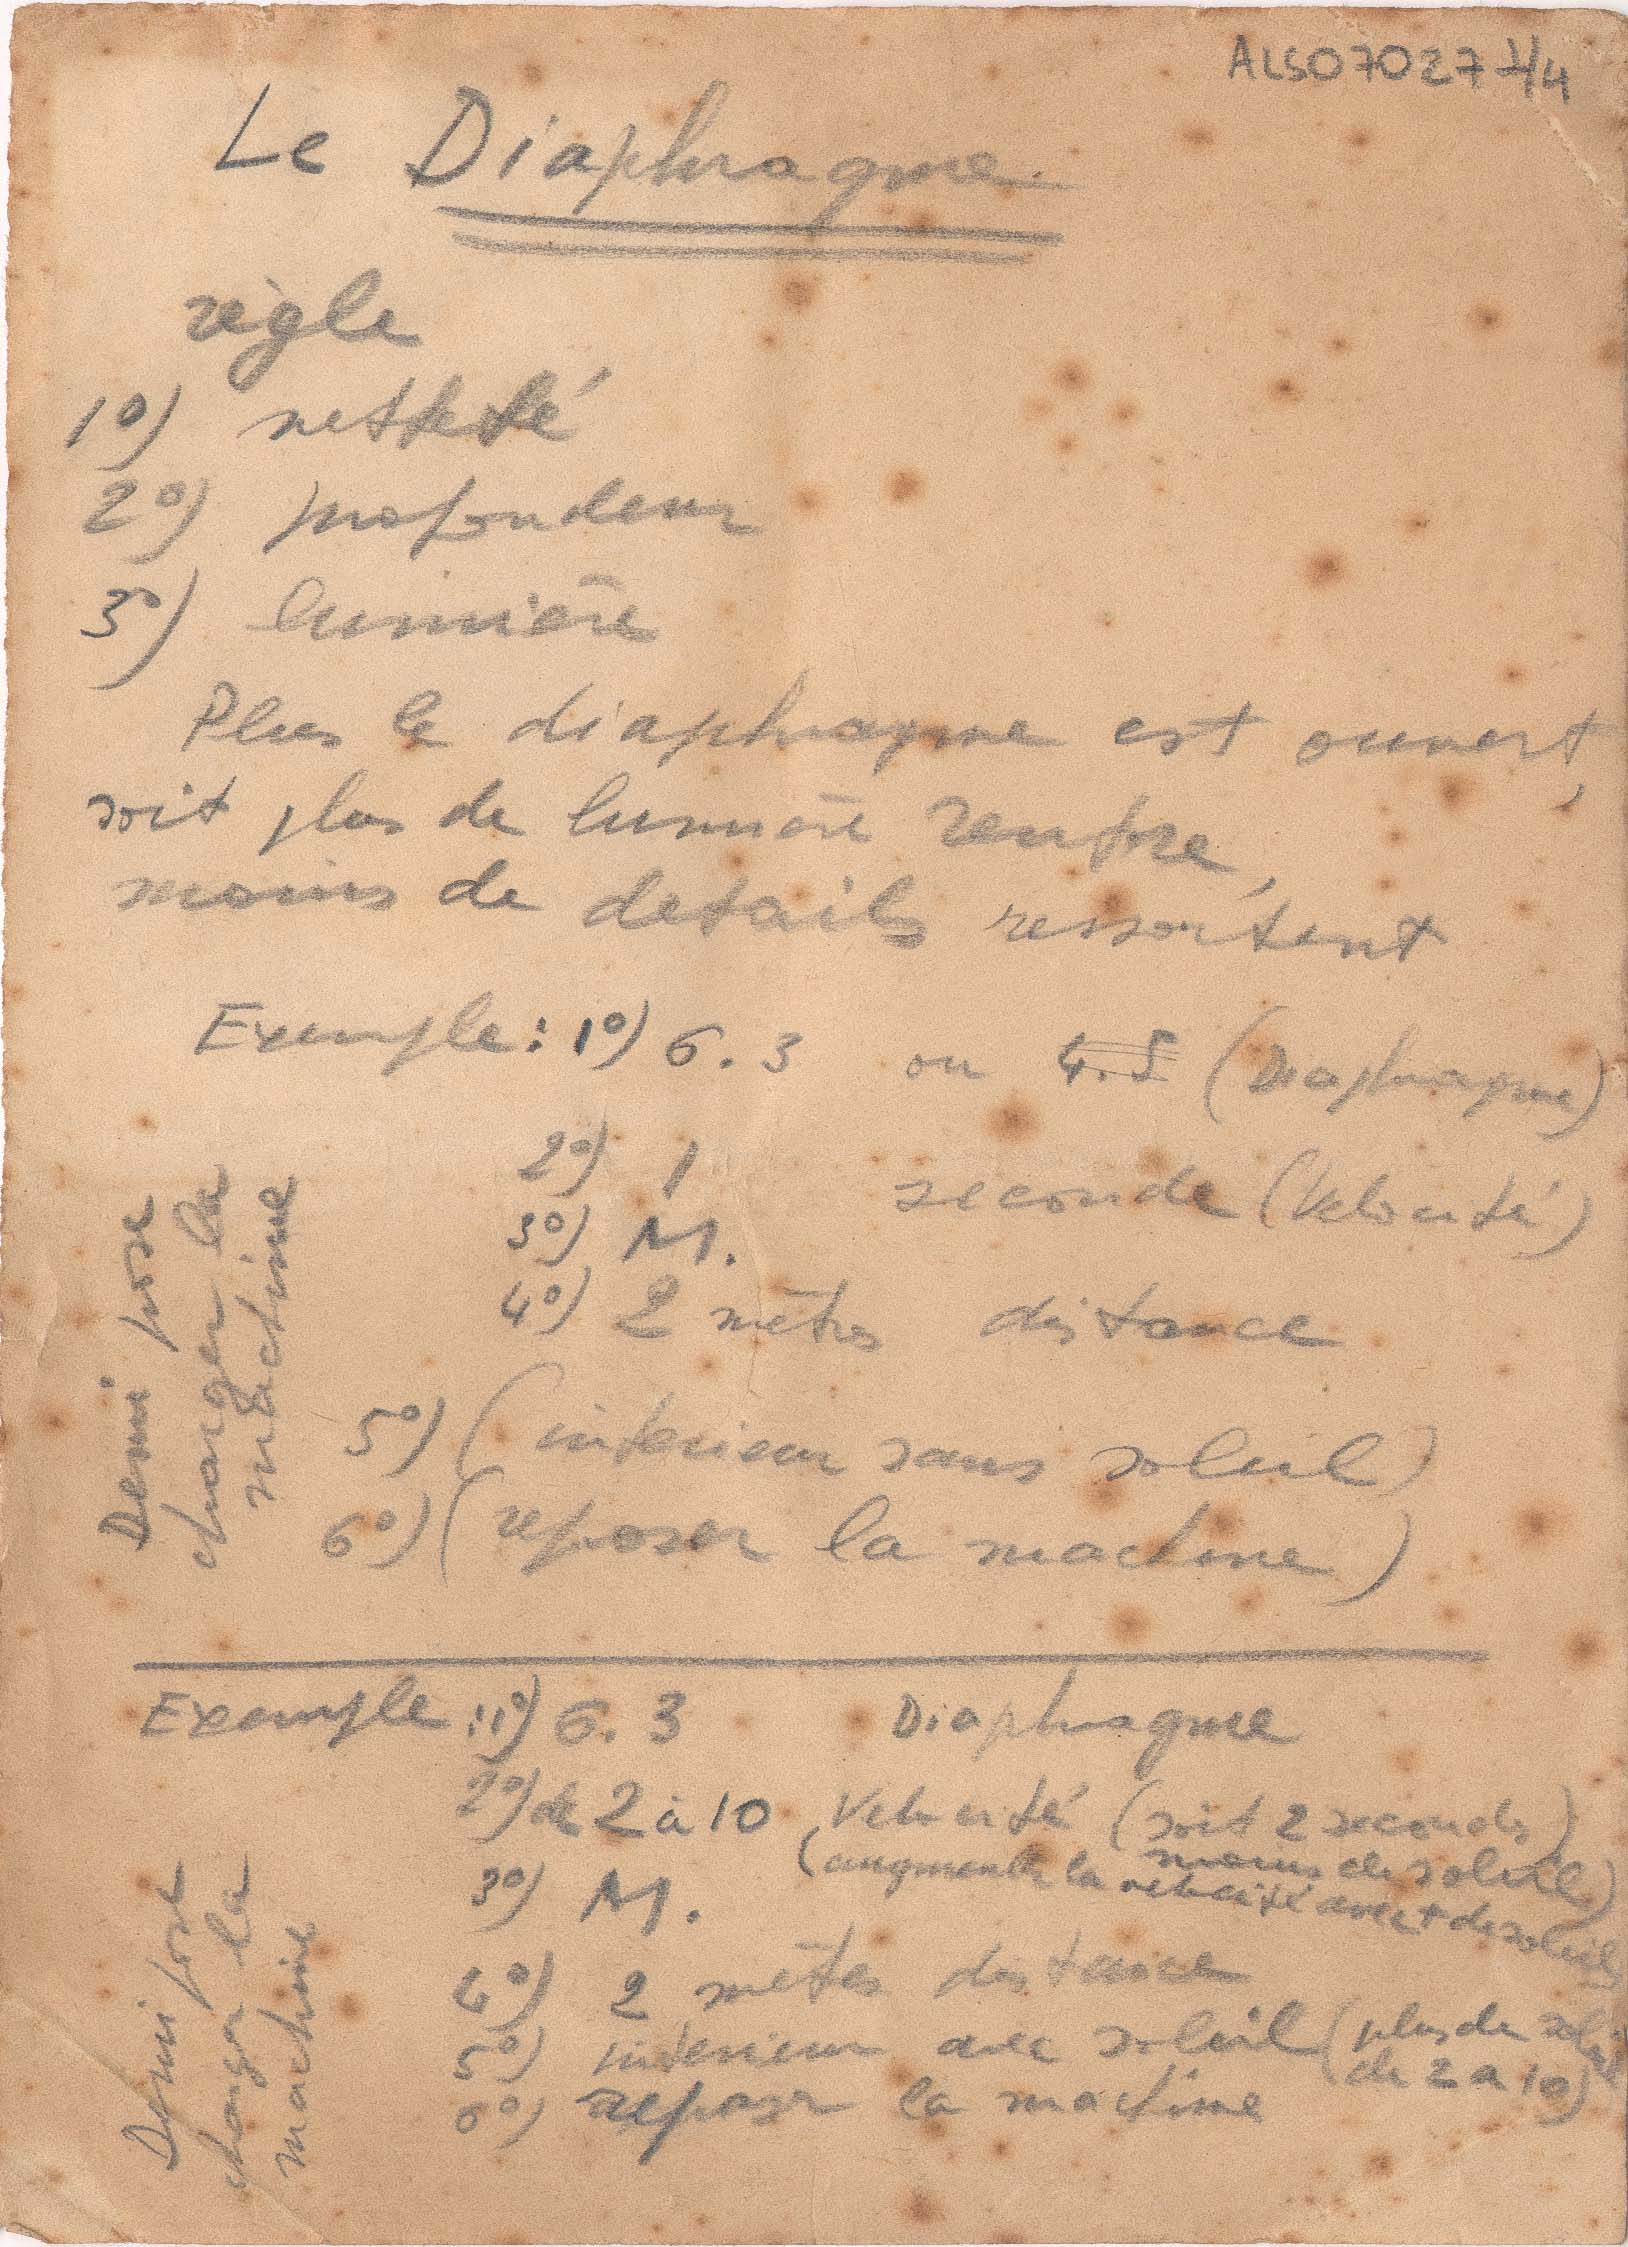 ALS07027 1/4
Le Diaphragme
règle
1º) netteté
2º) profondeur
3º) lumière
Plus le diaphragme est ouvert,
soit plus de lumière rentre,
moins de details ressortent
Exemple : 1º) 6.3 ou 4.5 (Diaphragme)
2º) 1 seconde (Velocité)
3º) M.
4º) 2 mètres distance
5º) (interieur sans soleil)
6º) (reposer la machine)
Demi pose
charger la
machine
Example : 1º) 6.3 Diaphragme
2º) de 2 à 10 Velocité (soit 2 seconds)
(augmenter la velocité avec + de soleil
moins de soleil)
3º) M.
4º) 2 mètes distance
5º) interieur avec soleil (plus de soleil
de 2 a 10)
6º) reposer la machine
Demi pose
charger la
machine